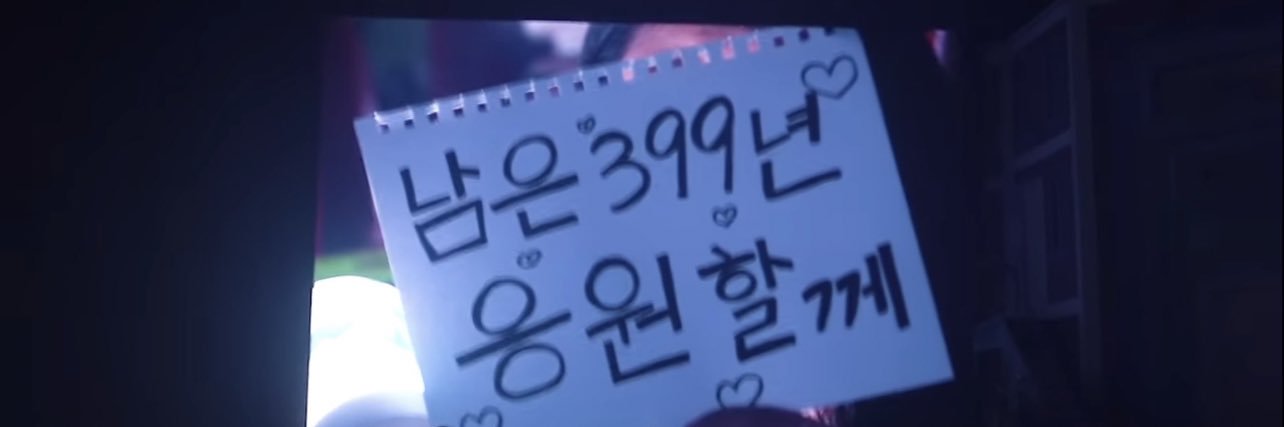 남은 399년
응원 할께